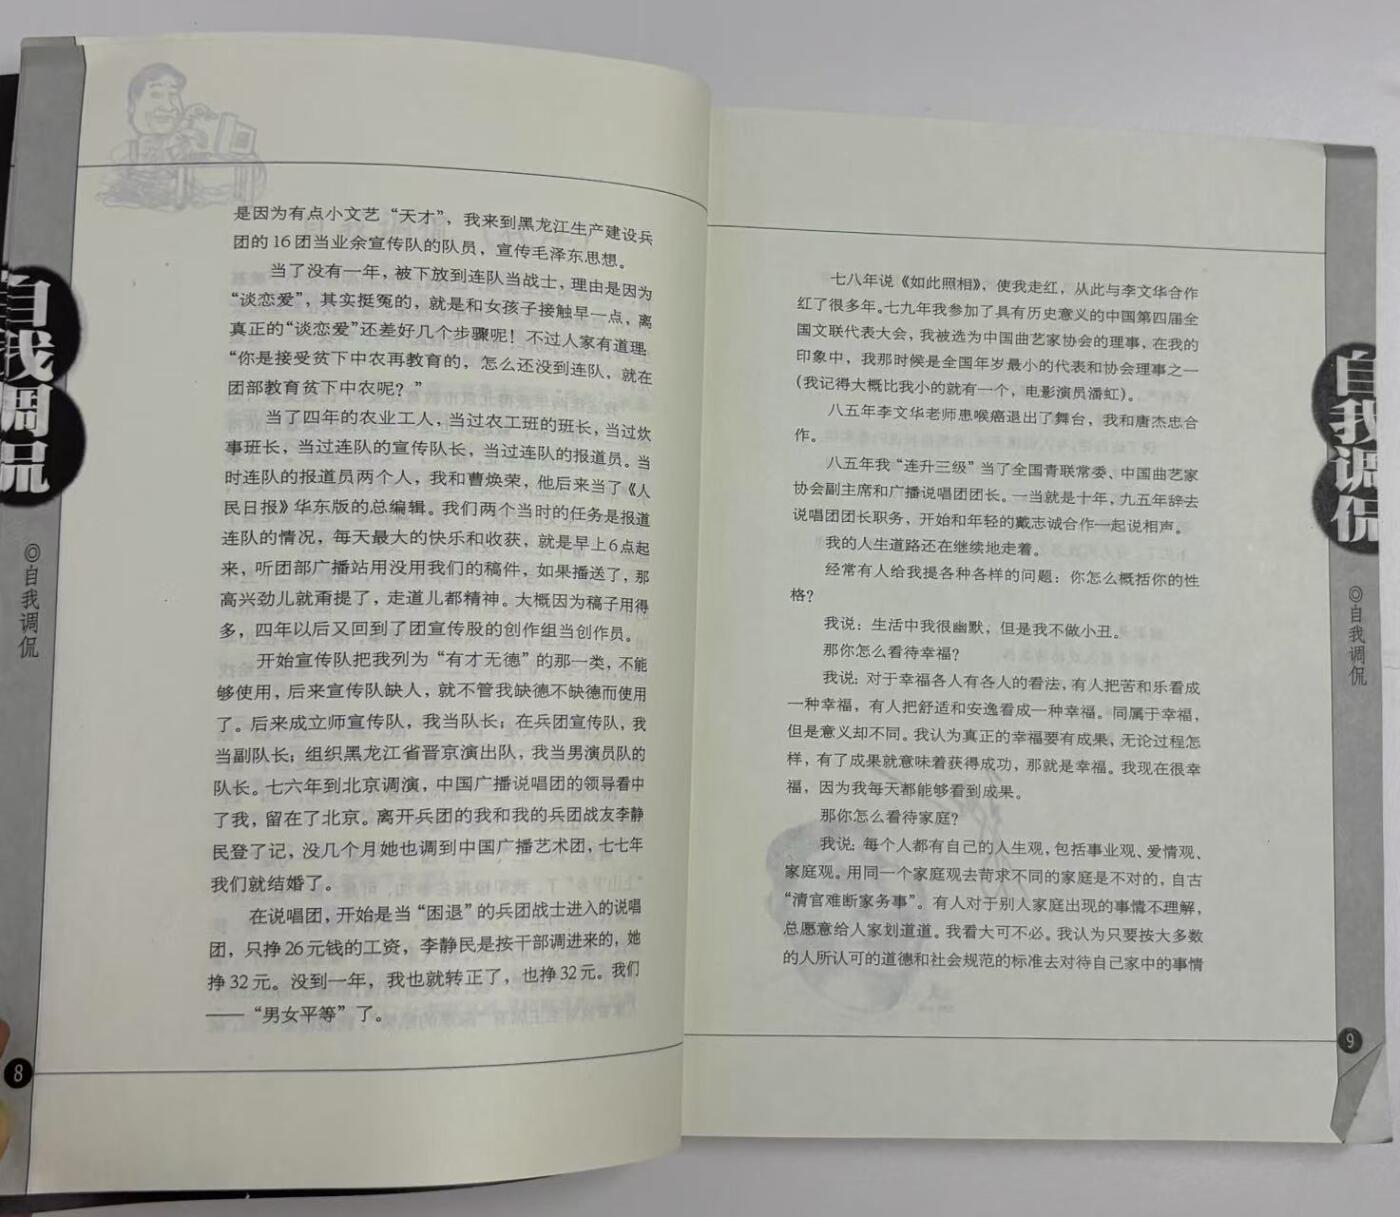 自我调侃
◎自我调侃
是因为有点小文艺“天才”，我来到黑龙江生产建设兵
团的16团当业余宣传队的队员，宣传毛泽东思想。
当了没有一年，被下放到连队当战士，理由是因为
“谈恋爱”，其实挺冤的，就是和女孩子接触早一点，离
真正的“谈恋爱”还差好几个步骤呢！不过人家有道理，
“你是接受贫下中农再教育的，怎么还没到连队，就在
团部教育贫下中农呢？”
当了四年的农业工人，当过农工班的班长，当过炊
事班长，当过连队的宣传队长，当过连队的报道员。当
时连队的报道员两个人，我和曹焕荣，他后来当了《人
民日报》华东版的总编辑。我们两个当时的任务是报道
连队的情况，每天最大的快乐和收获，就是早上6点起
来，听团部广播站用没用我们的稿件，如果播送了，那
高兴劲儿就甭提了，走道儿都精神。大概因为稿子用得
多，四年以后又回到了团宣传股的创作组当创作员。
开始宣传队把我列为“有才无德”的那一类，不能
够使用，后来宣传队缺人，就不管我缺德不缺德而使用
了。后来成立师宣传队，我当队长；在兵团宣传队，我
当副队长；组织黑龙江省晋京演出队，我当男演员队的
队长。七六年到北京调演，中国广播说唱团的领导看中
了我，留在了北京。离开兵团的我和我的兵团战友李静
民登了记，没几个月她也调到中国广播艺术团，七七年
我们就结婚了。
在说唱团，开始是当“困退”的兵团战士进入的说唱
团，只挣26元钱的工资，李静民是按干部调进来的，她
挣32元。没到一年，我也就转正了，也挣32元。我们
——“男女平等”了。
8
七八年说《如此照相》，使我走红，从此与李文华合作
红了很多年。七九年我参加了具有历史意义的中国第四届全
国文联代表大会，我被选为中国曲艺家协会的理事，在我的
印象中，我那时候是全国年岁最小的代表和协会理事之一
（我记得大概比我小的就有一个，电影演员潘虹）。
八五年李文华老师患喉癌退出了舞台，我和唐杰忠合
作。
八五年我“连升三级”当了全国青联常委、中国曲艺家
协会副主席和广播说唱团团长。一当就是十年，九五年辞去
说唱团团长职务，开始和年轻的戴志诚合作一起说相声。
我的人生道路还在继续地走着。
经常有人给我提各种各样的问题：你怎么概括你的性
格？
我说：生活中我很幽默，但是我不做小丑。
那你怎么看待幸福？
我说：对于幸福各人有各人的看法，有人把苦和乐看成
一种幸福，有人把舒适和安逸看成一种幸福。同属于幸福，
但是意义却不同。我认为真正的幸福要有成果，无论过程怎
样，有了成果就意味着获得成功，那就是幸福。我现在很幸
福，因为我每天都能够看到成果。
那你怎么看待家庭？
我说：每个人都有自己的人生观，包括事业观、爱情观、
家庭观。用同一个家庭观去苛求不同的家庭是不对的，自古
“清官难断家务事”。有人对于别人家庭出现的事情不理解，
总愿意给人家划道道。我看大可不必。我认为只要按大多数
的人所认可的道德和社会规范的标准去对待自己家中的事情
自我调侃
◎自我调侃
9